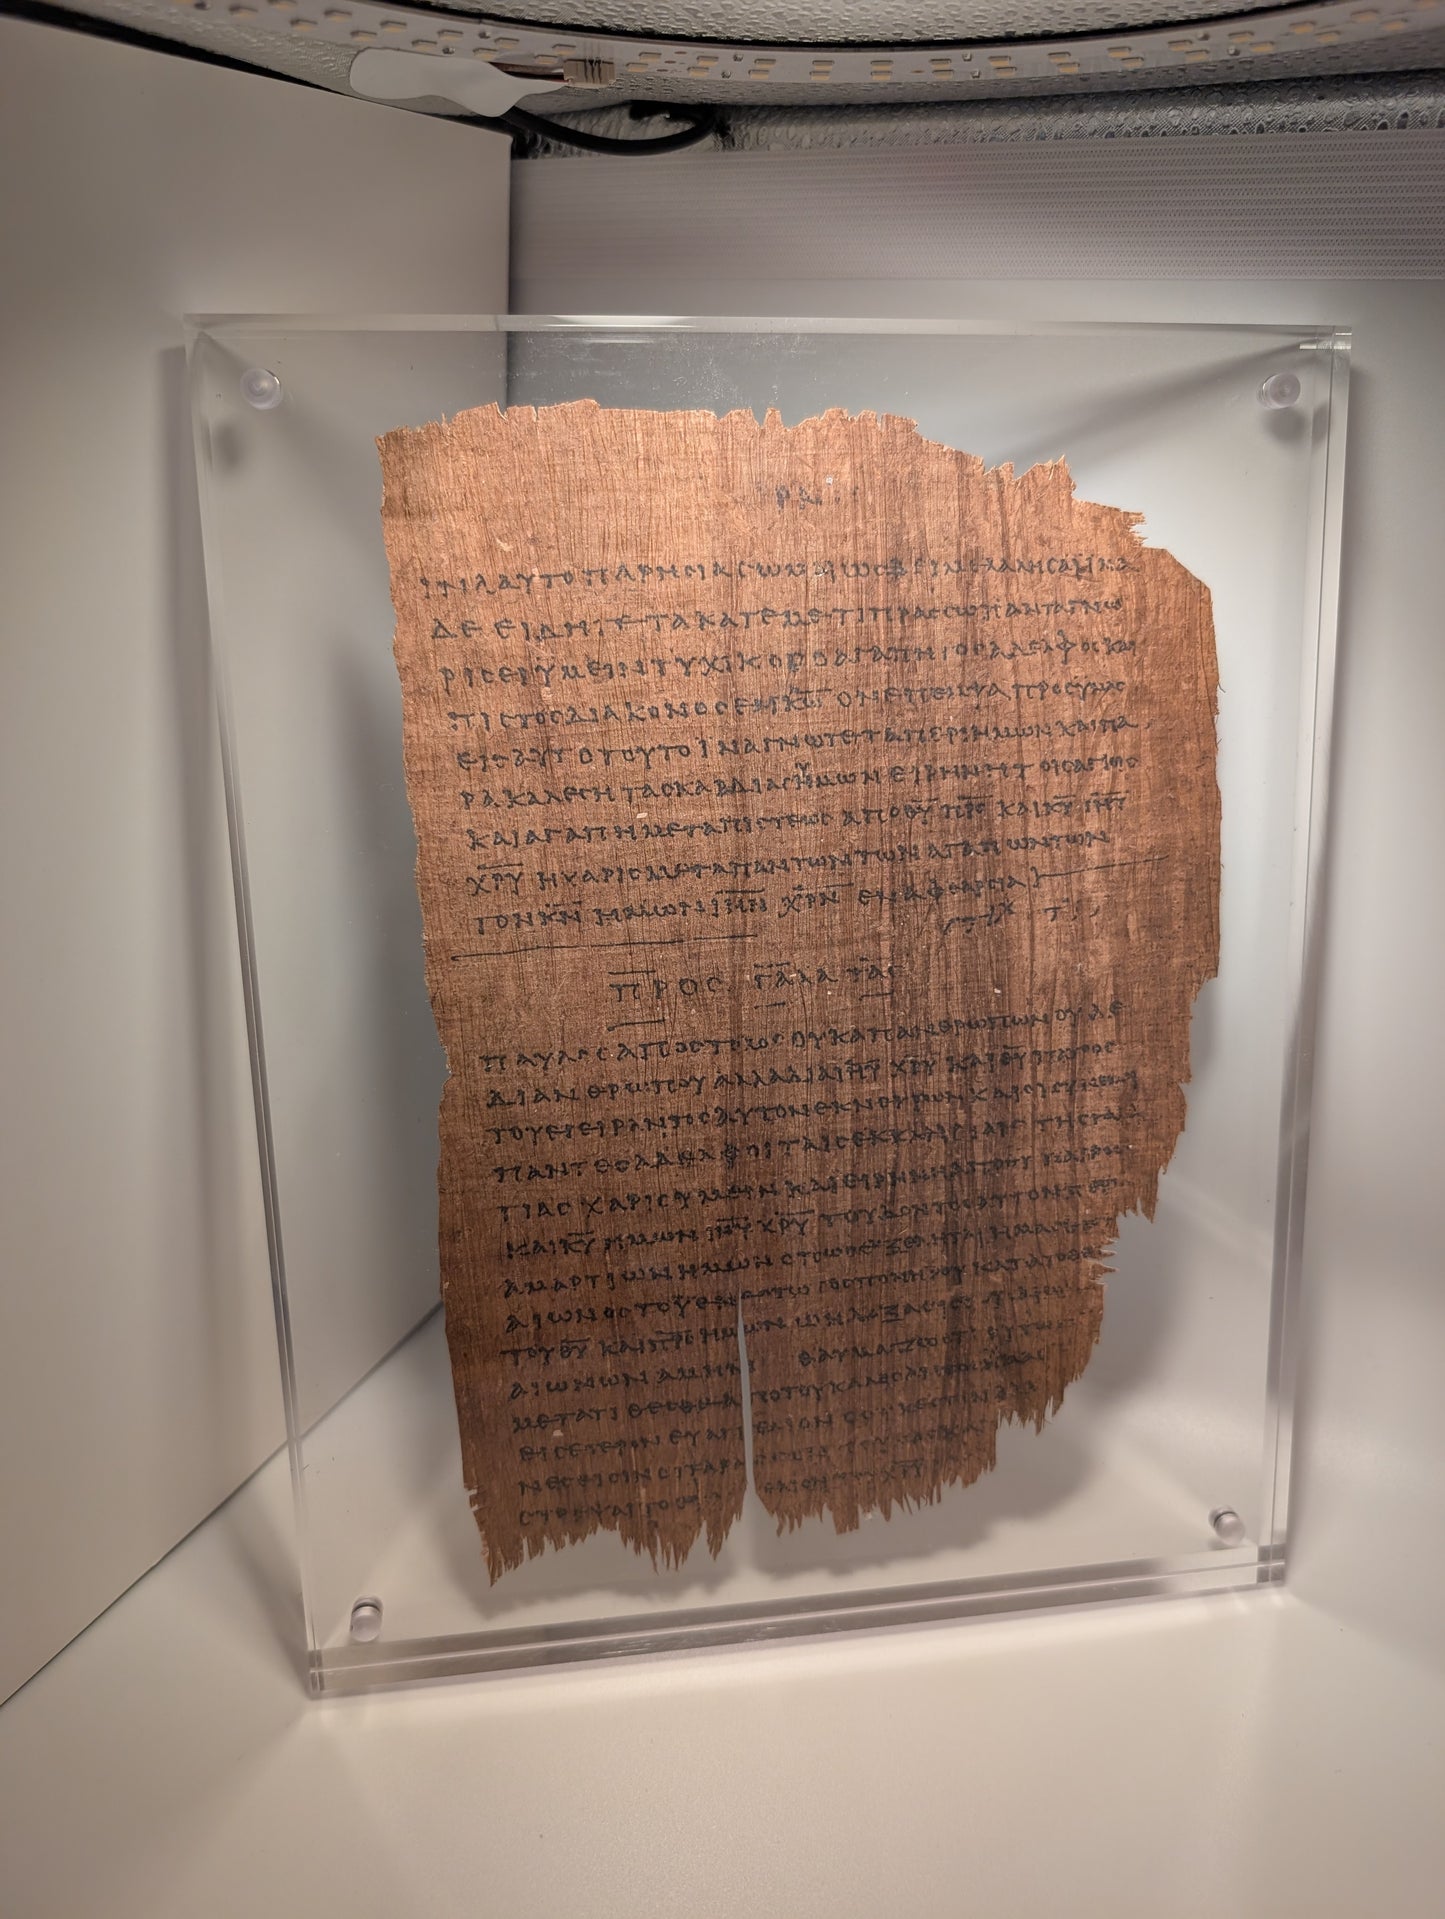 ΙΝΑ ΑΥΤΟ ΠΑΡΗϹΙΑϹΩΜΑΙ ΩϹ ΔΕΙ ΜΕ ΛΑΛΗϹΑΙ ΙΝΑ
ΔΕ ΕΙΔΗΤΕ ΤΑ ΚΑΤ ΕΜΕ ΤΙ ΠΡΑϹϹΩ ΠΑΝΤΑ ΓΝΩ
ΡΙϹΕΙ ΥΜΕΙΝ ΤΥΧΙΚΟϹ Ο ΑΓΑΠΗΤΟϹ ΑΔΕΛΦΟϹ ΚΑΙ
ΠΙϹΤΟϹ ΔΙΑΚΟΝΟϹ ΕΝ Κ̅Ω̅ ΟΝ ΕΠΕΜΨΑ ΠΡΟϹ ΥΜΑϹ
ΕΙϹ ΑΥΤΟ ΤΟΥΤΟ ΙΝΑ ΓΝΩΤΕ ΤΑ ΠΕΡΙ ΗΜΩΝ ΚΑΙ ΠΑ
ΡΑΚΑΛΕϹΗ ΤΑϹ ΚΑΡΔΙΑϹ ΥΜΩΝ ΕΙΡΗΝΗ ΤΟΙϹ ΑΓΙΟΙϹ
ΚΑΙ ΑΓΑΠΗ ΜΕΤΑ ΠΙϹΤΕΩϹ ΑΠΟ Θ̅Υ̅ Π̅Ρ̅Ϲ̅ ΚΑΙ Κ̅Υ̅ Ι̅Η̅Υ̅
Χ̅Ρ̅Υ̅ Η ΧΑΡΙϹ ΜΕΤΑ ΠΑΝΤΩΝ ΤΩΝ ΑΓΑΠΩΝΤΩΝ
ΤΟΝ Κ̅Ν̅ ΗΜΩΝ Ι̅Η̅Ν̅ Χ̅Ρ̅Ν̅ ΕΝ ΑΦΘΑΡϹΙΑ
ΠΡΟϹ ΓΑΛΑΤΑϹ
ΠΑΥΛΟϹ ΑΠΟϹΤΟΛΟϹ ΟΥΚ ΑΠ ΑΝΘΡΩΠΩΝ ΟΥΔΕ
ΔΙ ΑΝΘΡΩΠΟΥ ΑΛΛΑ ΔΙΑ Ι̅Η̅Υ̅ Χ̅Ρ̅Υ̅ ΚΑΙ Θ̅Υ̅ ΠΑΤΡΟϹ
ΤΟΥ ΕΓΕΙΡΑΝΤΟϹ ΑΥΤΟΝ ΕΚ ΝΕΚΡΩΝ ΚΑΙ ΟΙ ϹΥΝ ΕΜΟΙ
ΠΑΝΤΕϹ ΑΔΕΛΦΟΙ ΤΑΙϹ ΕΚΚΛΗϹΙΑΙϹ ΤΗϹ ΓΑΛΑ
ΤΙΑϹ ΧΑΡΙϹ ΥΜΕΙΝ ΚΑΙ ΕΙΡΗΝΗ ΑΠΟ Θ̅Υ̅
ΚΑΙ Κ̅Υ̅ ΗΜΩΝ Ι̅Η̅Υ̅ Χ̅Ρ̅Υ̅ ΤΟΥ ΔΟΝΤΟϹ ΑΥΤΟΝ
ΑΜΑΡΤΙΩΝ ΗΜΩΝ ΟΠΩϹ ΕΞΕΛΗΤΑΙ ΗΜΑϹ
ΑΙΩΝΟϹ ΤΟΥ ΕΝΕϹΤΩΤΟϹ ΠΟΝΗΡΟΥ ΚΑΤΑ ΤΟ
ΤΟΥ Θ̅Υ̅ ΚΑΙ Π̅Ρ̅Ϲ̅ ΗΜΩΝ Ω Η ΔΟΞΑ ΕΙϹ
ΑΙΩΝΩΝ ΑΜΗΝ ΘΑΥΜΑΖΩ ΟΤΙ ΟΥΤΩϹ
ΜΕΤΑΤΙΘΕϹΘΕ ΑΠΟ ΤΟΥ ΚΑΛΕϹΑΝΤΟϹ
ΕΙϹ ΕΤΕΡΟΝ ΕΥΑΓΓΕΛΙΟΝ Ο ΟΥΚ ΕϹΤΙΝ
ΝΕϹ ΕΙϹΙΝ ΟΙ